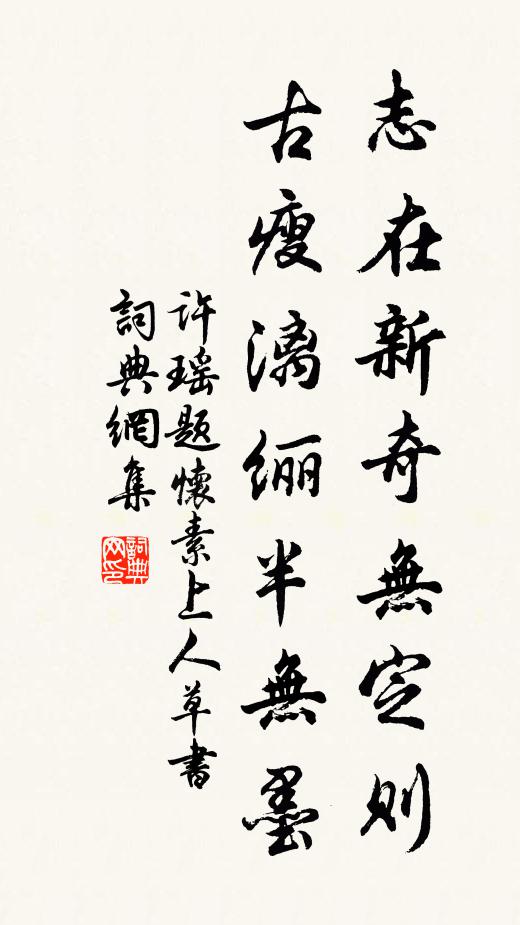 志在新奇無定則
古瘦漓纚半無墨
许瑶題懷素上人草書
詞典網集
詞典网印